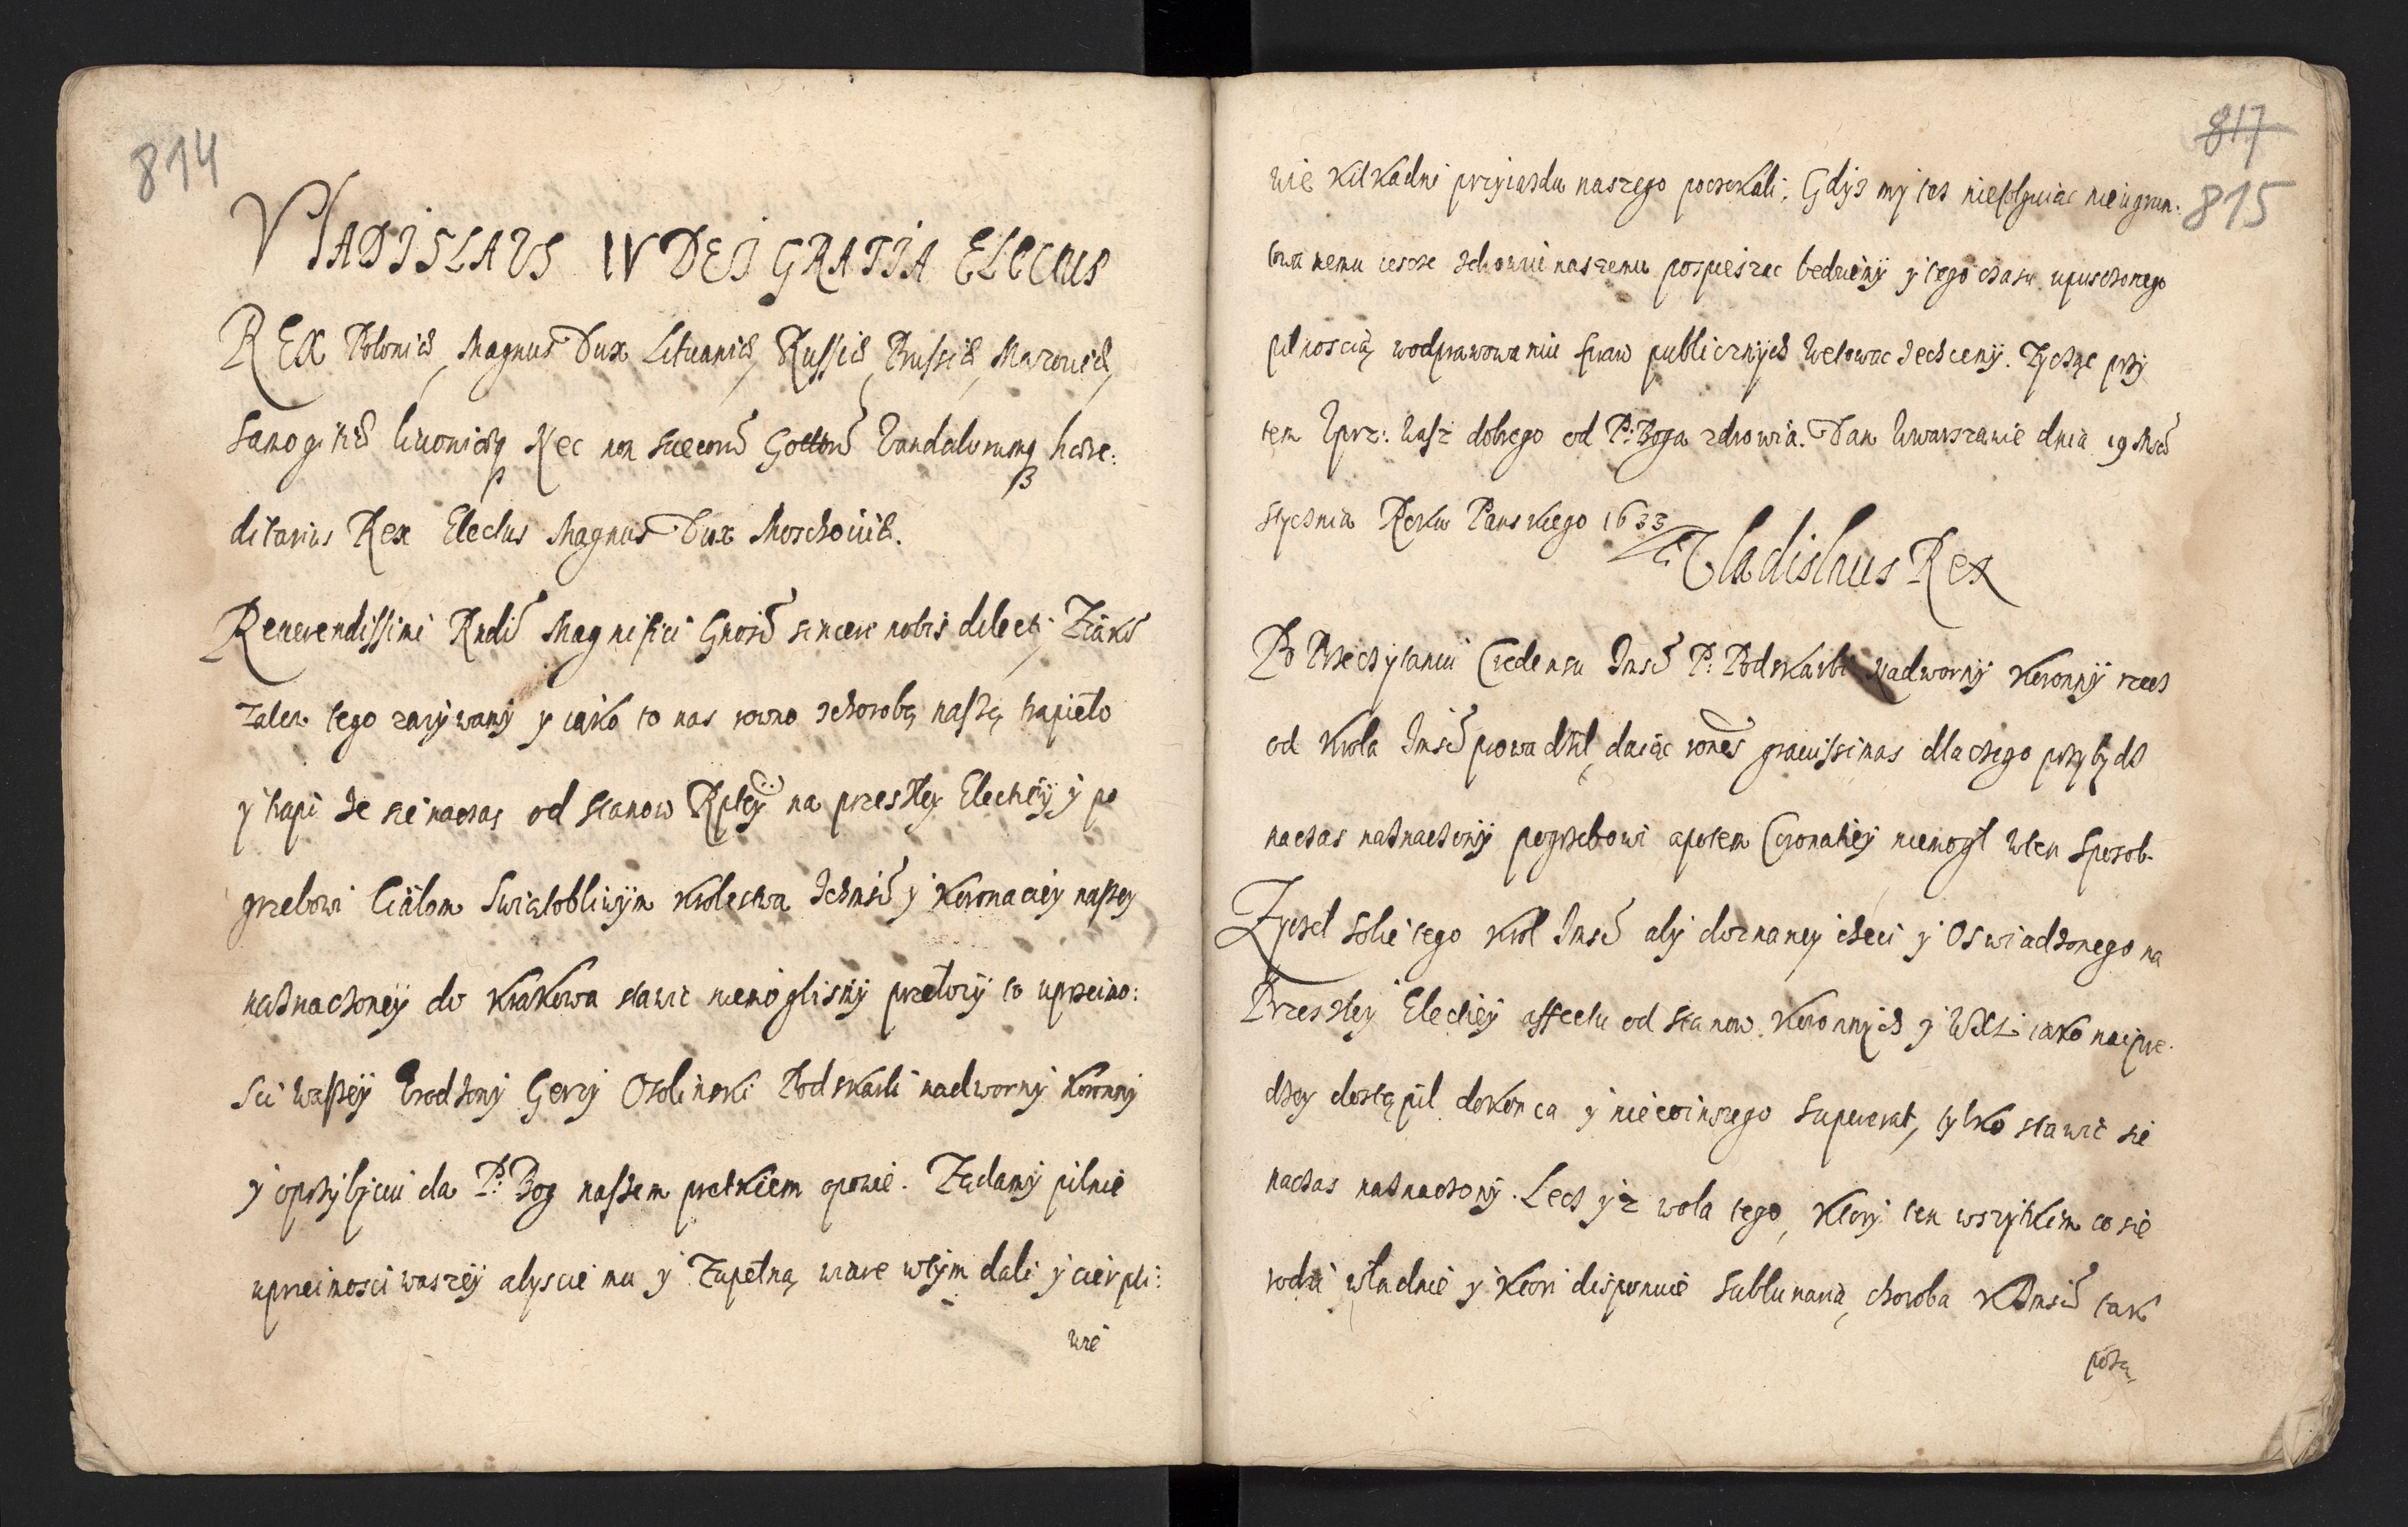 814
VlADISLAVS IV DEI GRATIA ELECTUS
REX Poloniæ, Magnus Dux Lituaniæ, Russiæ, Prussiæ, Mazouiæ,
Samogitiæ Liuoniæq Nec non Suecorũ Gottorũ Vandalorumq hære:
ditarius Rex Electus Magnus Dux Moschouiæ.
Reuerendissimi Rndi Magnifici Gnosi sincere nobis dilecti. Z iako
zalem tego zazywamy y iako to nas rowno z chorobą naszą trapieło
y trapi ze sie na czas od stanow Rptey na przeszłey Elecktiey y po
grzebowi Ciałom Swiątobliwym Krolestwa Ichmsci y Koronaciey naszey
naznaczoneÿ do Krakowa stawic niemoglismy przełozy to uprzeimo:
sci waszeÿ Urodzony Gerzy Osolinski Podskarbi nadworny Koronny
y o przybyciu da P: Bog naszem prętkiem opowie. Ządamy pilnie
uprzeimosci waszeÿ abyscie mu y Zupełną wiare w tym dali y cierpli:
wie
817
815
wie kilkadni przyiazdu naszego poczekali. Gdyz my tez niefolguiąc nieugrun:
towanemu iescze zdrowiu naszemu pospieszac bedziemy y tego czasu upusczonego
pilnoscią w odprawowaniu spraw publicznych wetowac zechcemy. Zycząc przy
tem Uprz: Wasz dobrego od P: Boga zdrowia. Dan w Warszawie dnia 19 Msca
stycznia Roku Panskiego 1633
Vladislaus Rex
Po Przeczytaniu Credensu Jmsci P: Podskarbi Nadworny Koronny rzecz
od Krola Jmsci prowadził, daiąc rones grauissimas dlaczego przybydz
naczas naznaczony pogrzebowi apotem Coronatiey niemogł w ten sposob.
Zyczel sobie tego Krol Jmsc aby doznaney checi y Oswiadzonego na
Przeszłey Elechiey affectu od stanow Koronnych y WXL iako nayprę:
dzey dostąpił dokonca y nie co inszego supererat, tylko stawic sie
naczas naznaczony. Lecz yz wola tego, Ktory tem wszytkiem co sie
rodzi władnie y Ktori disponuie sublunaria, choroba KJmsci tak